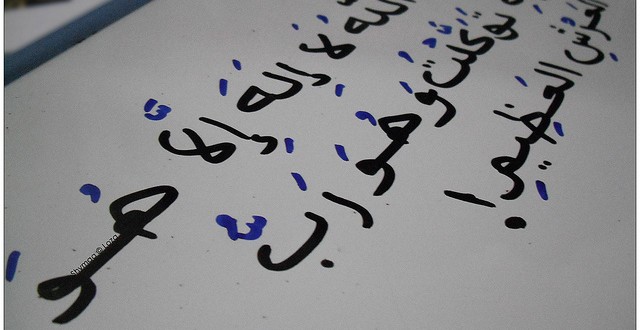 الله لَا إِلَهَ إِلَّا هُوَ
تَوَكَّلْتُ وَهُوَ رَبُّ
العَرْشِ العَظِيمِ!
Shymaa © Loza